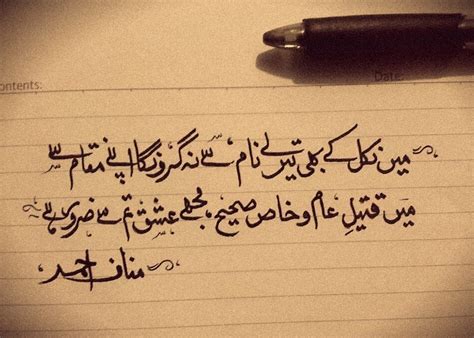 ontents:
Date:
میں نکل کے بھی تیرے نام سے نہ گروں گا اپنے مقام سے
میں قتیلِ عام و خاص صحیح، مجھے عشق تم سے ضرور ہے
مناف احمد